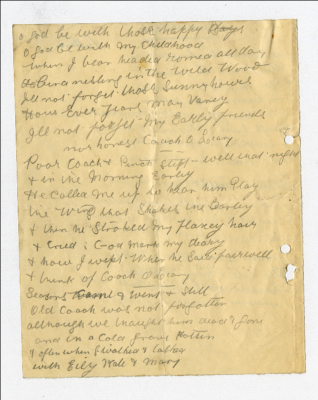 O God be with those happy Days
O God be with my Childhood
when I bear headed romed all day
nesting in the Wild Wood
Ill not forget those Sunny hours
How Ever years may Vaney
Ill not forget my Early friends
nor honest Coach O Leary
Poor Coach & Punch Slept well that night
& in the Morning Early
He Called me up to hear him Play
the Wind that Shakes the Barley
& then he Stroked my flaxey hair
& Cried God mark my deary
& how I wept When he Said farewell
& think of Coach O Leary
Seasons Came & Went & Still
Old Coach was not forgotten
although we thought him dead & gone
and in a Cold grave Rotten
& often when I walked & talked
with Eily Kate & Mary